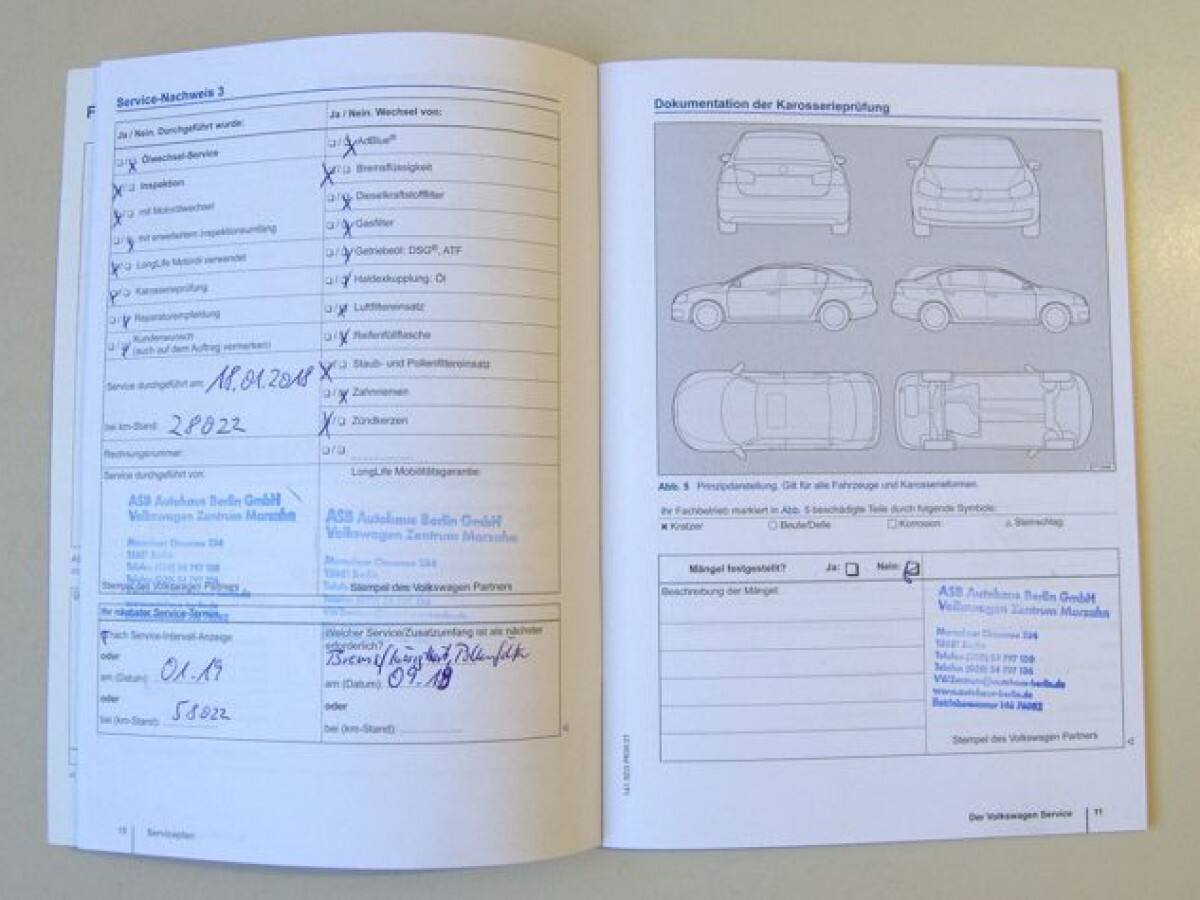 Service-Nachweis 3
Ja / Nein. Durchgeführt wurde:
Ölwechsel-Service
Inspektion
mit Motorölwechsel
mit erweitertem Inspektionsumfang
LongLife Motoröl verwendet
Karosserieprüfung
Reparaturempfehlung
Kundenwunsch
(auch auf dem Auftrag vermerken)
Service durchgeführt am: 18.01.2018
bei km-Stand: 28022
Rechnungsnummer:
Service durchgeführt von:
ASB Autohaus Berlin GmbH
Volkswagen Zentrum Marzahn
Stempel des Volkswagen Partners
Ja / Nein. Wechsel von:
AdBlue®
Bremsflüssigkeit
Dieselkraftstofffilter
Gasfilter
Getriebeöl: DSG®, ATF
Haldexkupplung: Öl
Luftfiltereinsatz
Reifenfüllflasche
Staub- und Pollenfiltereinsatz
Zahnriemen
Zündkerzen
LongLife Mobilitätsgarantie:
ASB Autohaus Berlin GmbH
Volkswagen Zentrum Marzahn
Stempel des Volkswagen Partners
Ihr nächster Service-Termin:
nach Service-Intervall-Anzeige
oder
am (Datum): 01.19
oder
bei (km-Stand): 58022
Welcher Service/Zusatzumfang ist als nächster
erforderlich?
am (Datum): 09.18
oder
bei (km-Stand):
Serviceplan
Dokumentation der Karosserieprüfung
Abb. 5 Prinzipdarstellung. Gilt für alle Fahrzeuge und Karosserieformen.
Ihr Fachbetrieb markiert in Abb. 5 beschädigte Teile durch folgende Symbole:
Kratzer Beule/Delle Korrosion Steinschlag
Mängel festgestellt? Ja: Nein:
Beschreibung der Mängel:
ASB Autohaus Berlin GmbH
Volkswagen Zentrum Marzahn
www.autohaus-berlin.de
Stempel des Volkswagen Partners
Der Volkswagen Service 11